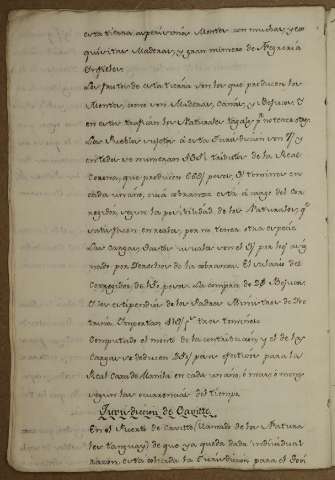 esta tierra, aspecisimos Montes con muchas, y ex
quisitas Maderas, y gran número de Negreria
Infieles.
Los frutos de esta tierra son los que producen los
Montes, como son Maderas, Cañas, y Bejucos. Y
en estos trafican los Naturales tagalos pr. no tener otros.
Los Pueblos sujetos á esta Jurisdicion son
en todos se numeran tributos de la Real
Corona, que producen pesos,
cada un año, cuia cobranza está á cargo del Cor
regidor, segun la posibilidad de los Naturales, q.
satisfacen en reales, por no tener otra especie.
Las Cargas, y Gastos usuales son el por
nado por Derechos de la cobranza. El salario del
Corregidor de pesos. La compra de Bejucos.
Y los estipendios de los Padres Ministros de Doc
trina Importan ps. tros tomines.
Computado el monto de la contribucion, y el de las
Cargas se deducen pesos efectivos para la
Real Caxa de Manila en cada un año, ó mas, ó menos
segun las ocurrencias del tiempo.
Jurisdicion de Cavitte
En el Puerto de Cavitte (llamado de los Natura
les tanguay) de que ya queda dada individual
razon, está colocada la Jurisdicion para el Govi